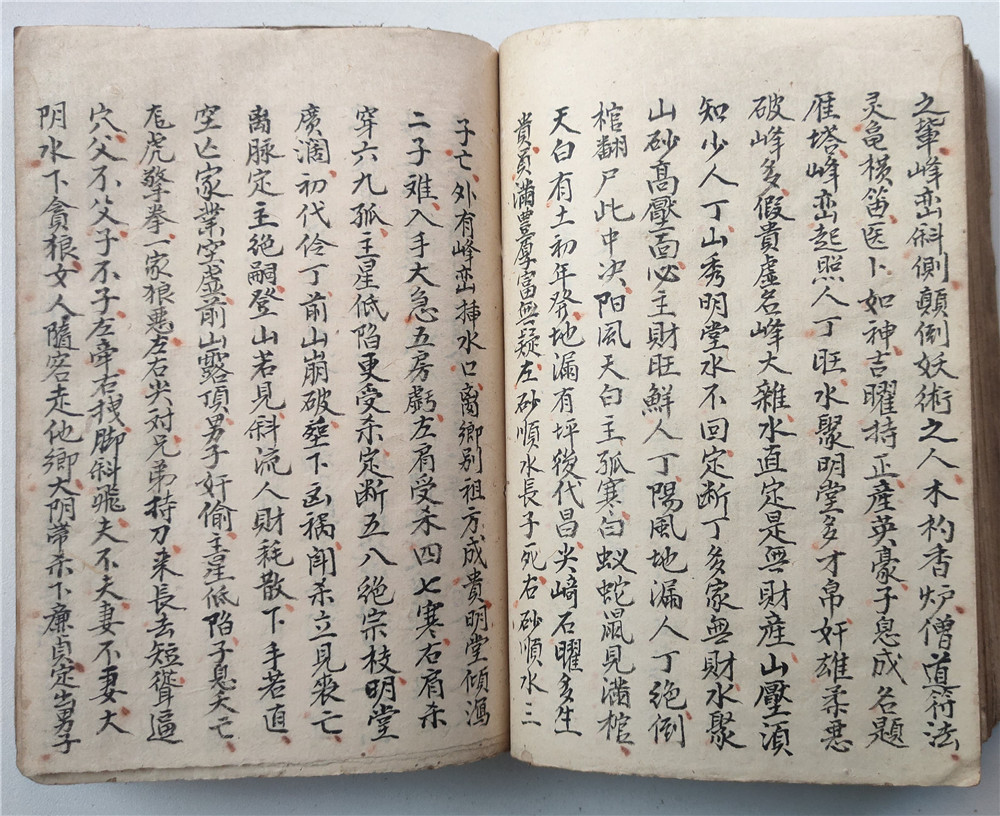 之輩峰峦斜側顛倒妖術之人木杓香炉僧道符法
灵龟横笛医卜如神吉曜持正產英豪子息成名題
雁塔峰峦起照人丁旺水聚明堂多才帛奸雄柔悪
破峰多假貴虚名峰大雜水直定是無財産山壓項
知少人丁山秀明堂水不回定断丁多家無財水聚
山砂髙壓面必主財旺鮮人丁陽風地漏人丁绝倒
棺翻尸此中决阳風天白主孤寒白蚁蛇鼠見滿棺
天白有土初年發地漏有坪後代昌尖﨑石曜多生
貴員滿豊厚富無疑左砂順水長子死右砂順水三
子亡外有峰峦挿水口离鄉别祖方成貴明堂傾瀉
二子难入手大急五房虧左肩受杀四七寒右肩杀
穿六九孤主星低陷更受杀定断五八绝宗枝明堂
廣濶初代伶丁前山崩破塟下凶禍闻杀立見丧亡
离脉定主绝嗣登山若見斜流人財耗散下手若直
空亡家業空虚前山露頂男子奸偷主星低陷子息夭亡
虎擎拳一家狼悪左右尖对兄弟持刀来長去短聳逼
穴父不父子不子左牵右拽脚斜飛夫不夫妻不妻大
阴水下貪狼女人隨客走他鄉大阴帶杀下廉貞定出男子